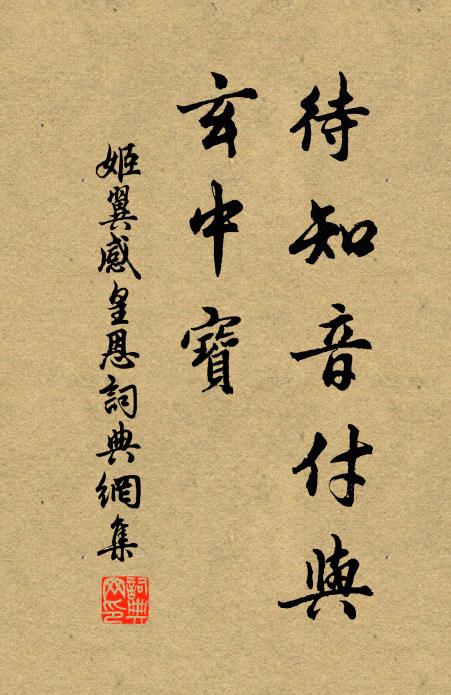 待知音付與
玄中寶
姬翼感皇恩詞典網集
詞典
网印